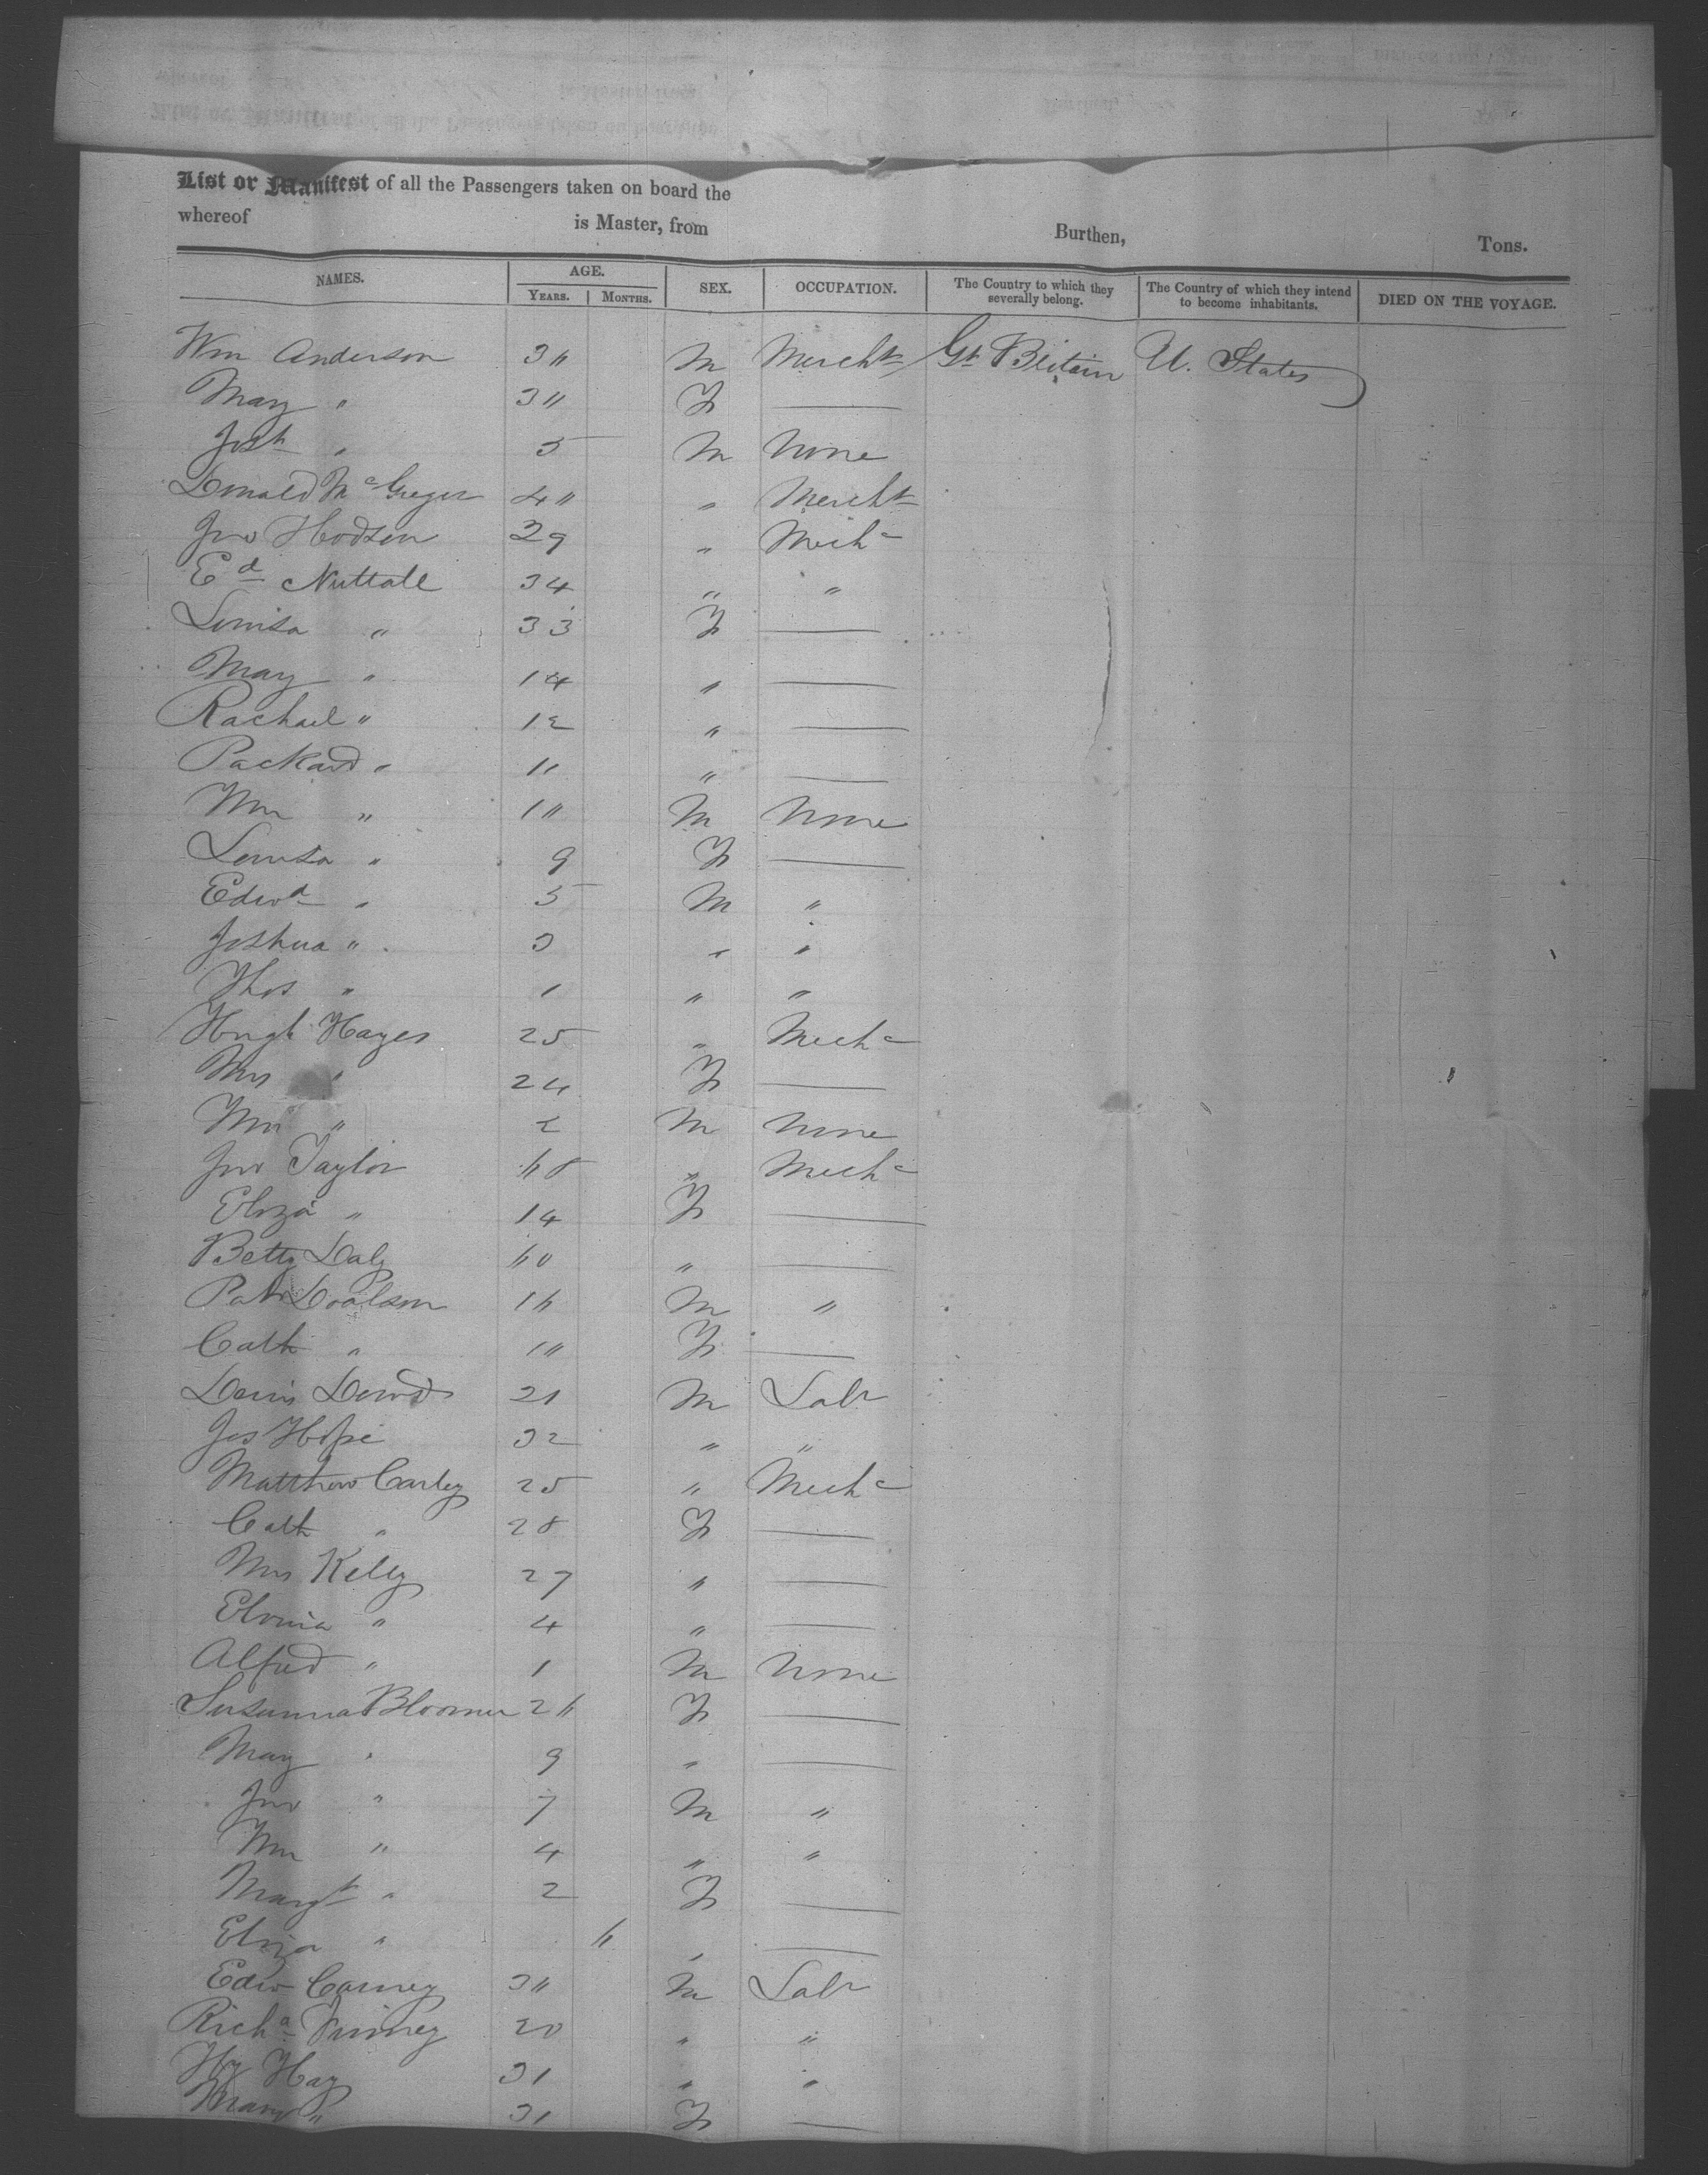 List or Manifest of all the Passengers taken on board the
whereof is Master, from Burthen, Tons.
NAMES. AGE. YEARS. MONTHS. SEX. OCCUPATION. The Country to which they severally belong. The Country of which they intend to become inhabitants. DIED ON THE VOYAGE.
Wm Anderson 3" M Mercht Gt Britain U. States
Mary " 3" F —
Josh " 5 M None
Donald McGregor 4" " Mercht
Jno Hodson 29 " Mechc
Ed Nuttall 34 " "
Louisa " 33 F —
Mary " 14 " —
Rachael " 12 " —
Packard " 11 " —
Wm " 1" M None
Louisa " 9 F —
Edwd " 5 M "
Joshua " 3 " "
Thos " 1 " "
Hugh Hayes 25 " Mechc
Mrs " 24 F —
Wm " 2 M None
Jno Taylor 48 " Mechc
Eliza " 14 F —
Betty Daly 60 " —
Patk 16 M "
Cath " 1" F —
Dowd 21 M Labr
Jos Hope 32 " "
Matthew Carley 25 " Mechc
Cath " 28 F —
Mrs Kelly 27 " —
" 4 " —
Alfred " 1 M None
Susanna Bloomer 26 F —
Mary " 9 " —
Jno " 7 M "
Wm " 4 " "
Margt " 2 F —
Eliza " 6 " —
Edw Carney 3" M Labr
Richd 20 " "
Hy Hay 31 " "
Mary " 31 F —